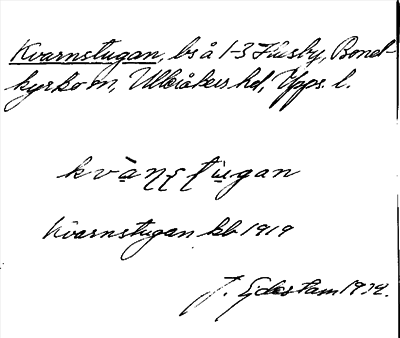 Kvarnstugan, bs å 1-3 Husby, Bond-
kyrko sn, Ulleråkers hd, Upps. l.
kvànstùgan
Kvarnstugan kb 1919
J. Ejdestam 1932.